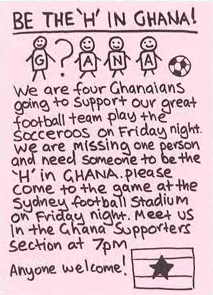 BE THE 'H' IN GHANA!
G ? A N A
We are four Ghanaians
going to support our great
football team play the
Socceroos on Friday night.
We are missing one person
and need someone to be the
'H' in GHANA. please
come to the game at the
Sydney football Stadium
on Friday night. Meet us
In the Ghana Supporters
section at 7pm
Anyone welcome!